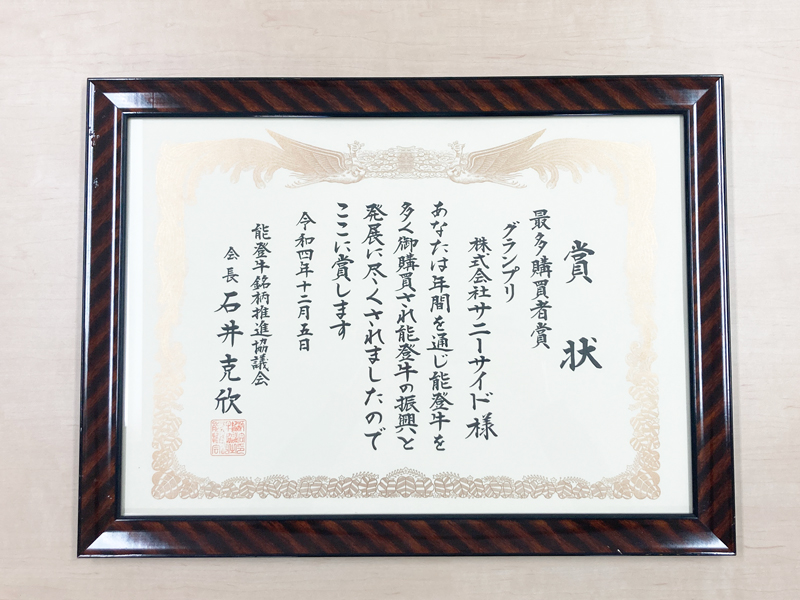 賞状
最多購買者賞
グランプリ
株式会社サニーサイド様
あなたは年間を通じ能登牛を
多く御購買され能登牛の振興と
発展に尽くされましたので
ここに賞します
令和四年十二月五日
能登牛銘柄推進協議会
会長 石井克欣